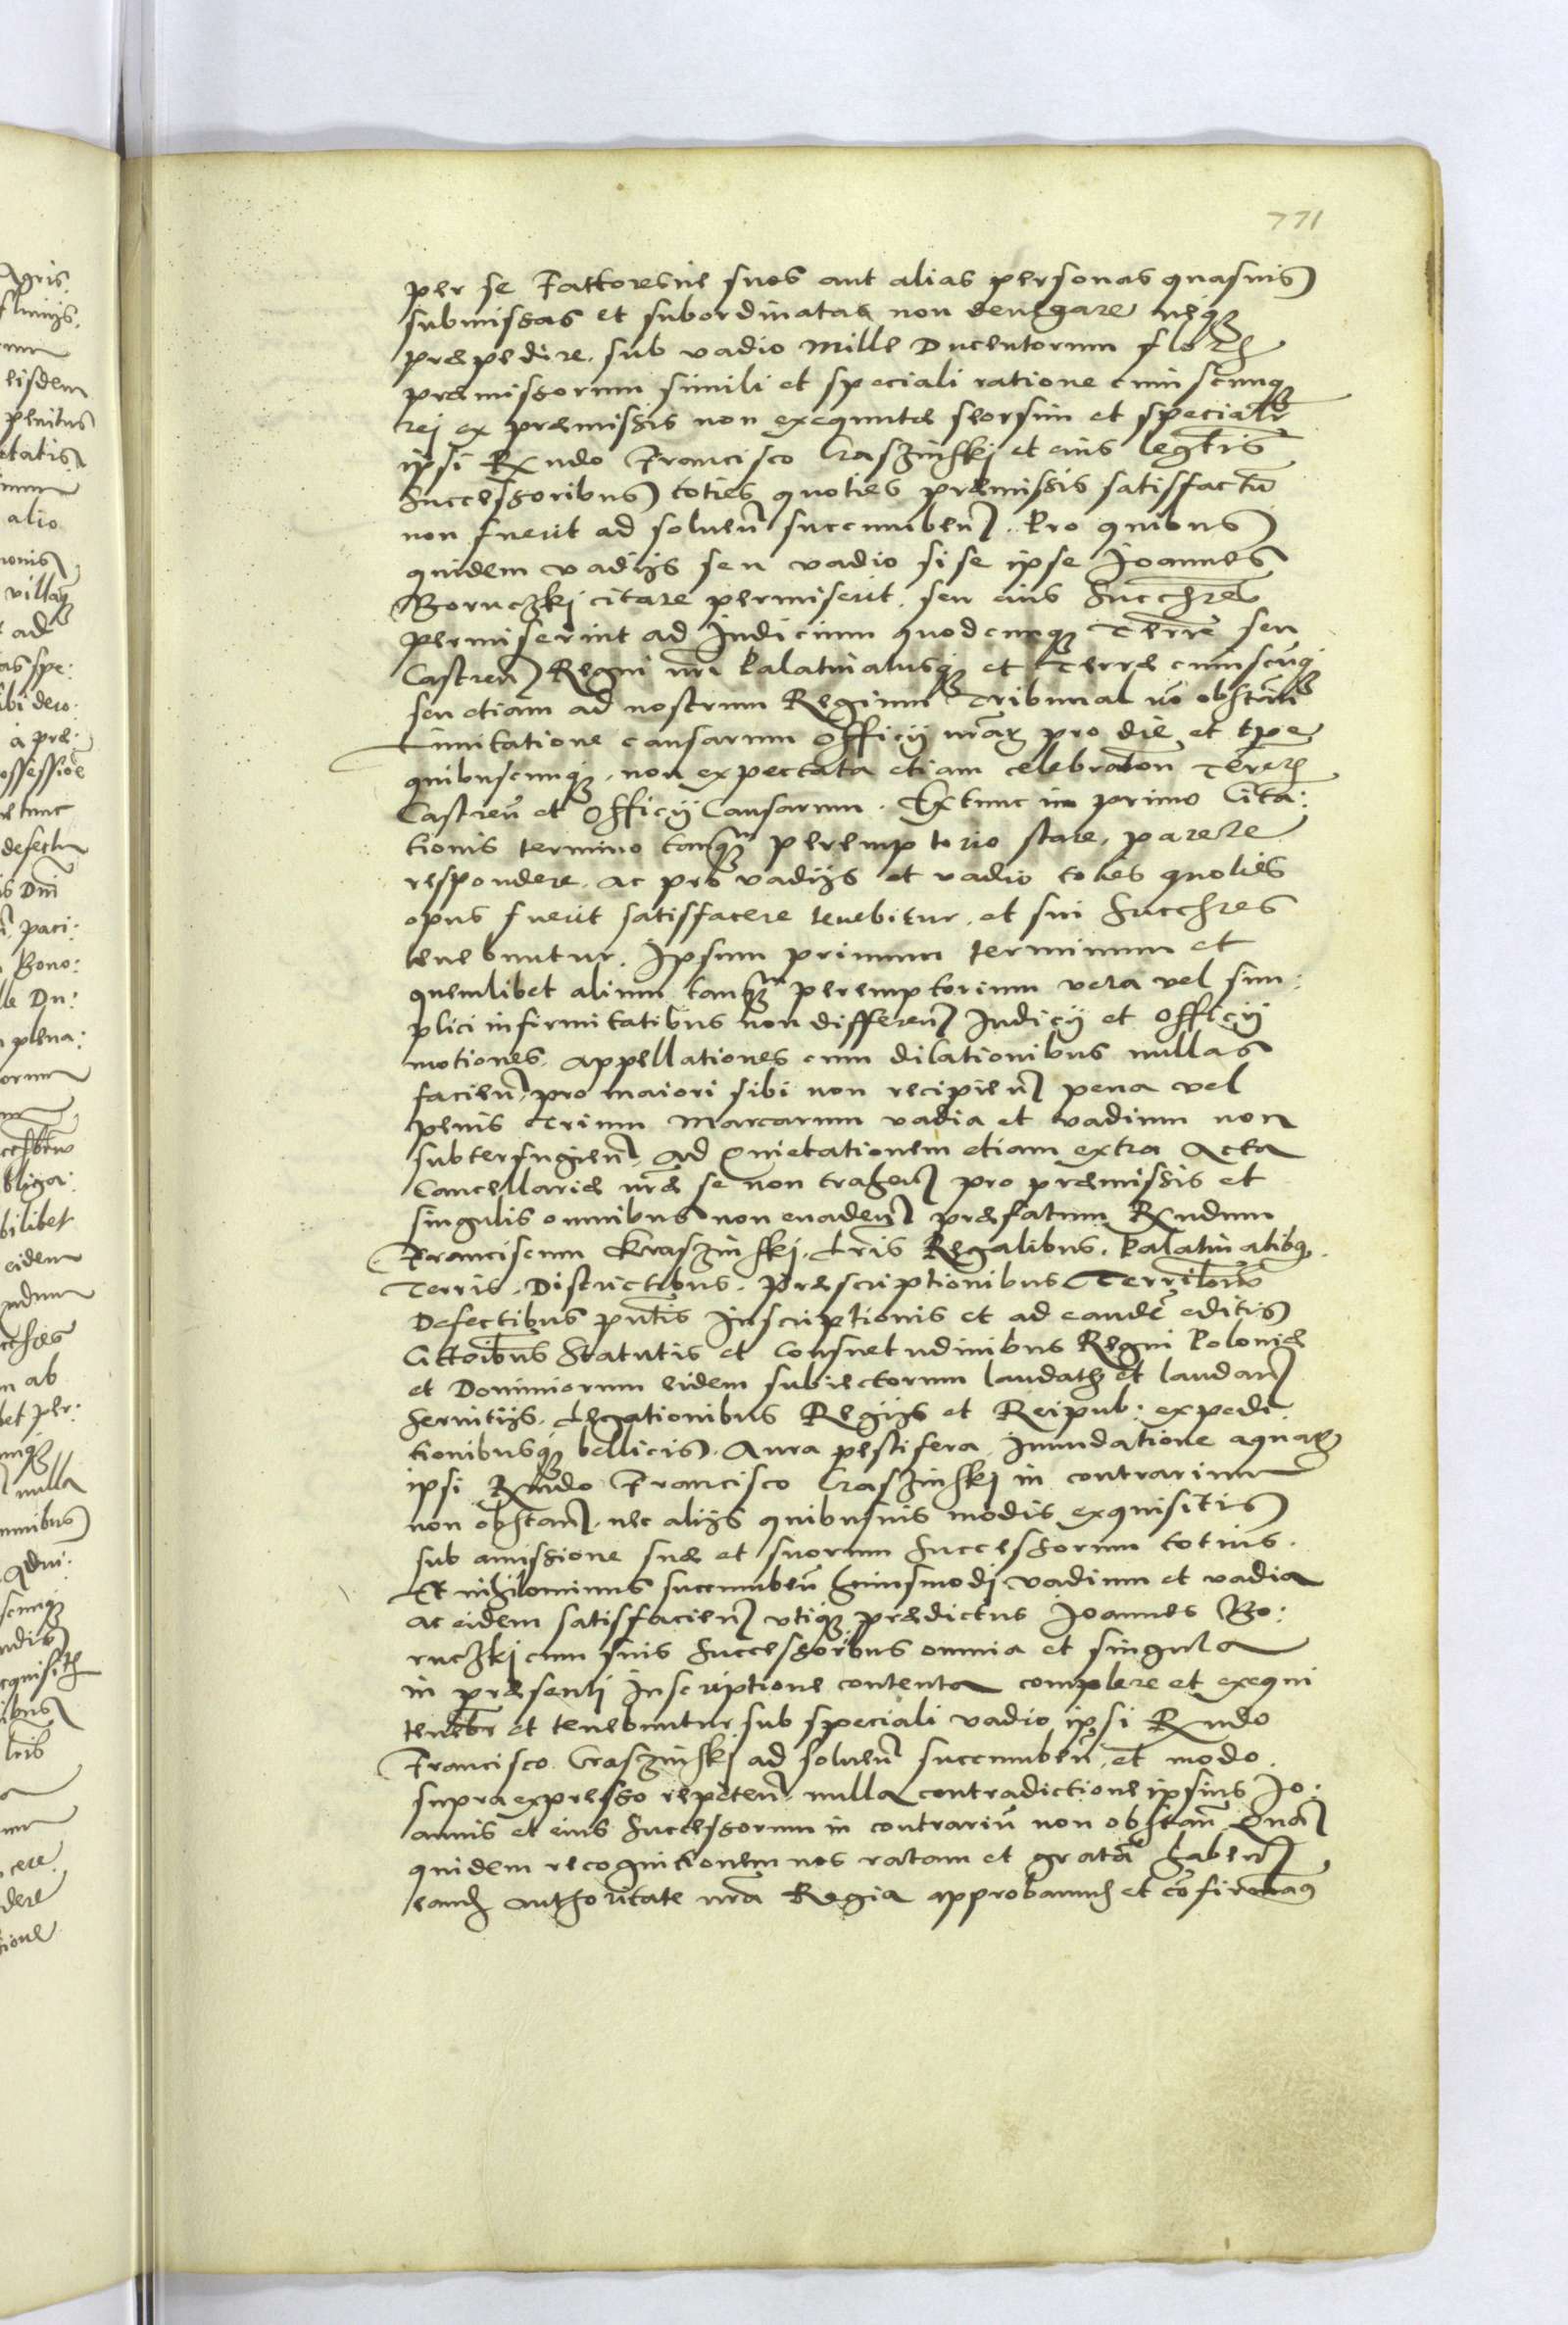 771
per se Factoresue suos aut alias personas quasuis
submissas et subordinatas non denegare neq3
præpedire. sub vadio Mille Ducentorum flor
præmissorum simili et speciali ratione cuiuscunq3
rej ex præmissis non exequutæ seorsim et specialr
ipsi Rndo Francisco Craszinskj et eius legtis
Successoribus toties quoties præmissis satisfactũ
non fuerit ad soluen succumben. Pro quibus
quidem vadijs seu vadio si se ipse Joannes
Boruczkj citare permiserit. seu eius Succhres
permiserint ad Judicium quodcunq3 Terre seu
Castren Regni nri Palatinatusq3 et Terræ cuiuscũq3
seu etiam ad nostrum Regium Tribunal nõ obstan
limitatione causarum Officij nrar pro die et tpe
quibuscunq3. non expectata etiam celebration Terr
Castreñ et Officij Causarum. Extunc in primo Cita:
tionis termino tanq3 peremptorio stare, parere
respondere. ac pro vadijs et vadio toties quoties
opus fuerit satisfacere tenebitur. et sui Succhres
tenebuntur. Ipsum primum terminum et
quemlibet alium tanq3 peremptorium vera vel sim:
plici infirmitatibus non differen Judicij et Officij
motiones. appellationes cum dilationibus nullas
facien. pro maiori sibi non recipien pena vel
penis trium Marcarum vadia et vadium non
subterfugien. ad Quietationem etiam extra Acta
Cancellariæ nræ se non trahen pro præmissis et
singulis omnibus non euaden præfatum Rndum
Franciscum Kraszinskj. Lris Regalibus. Palatinatibq3
Terris. Districtibus. Præscriptionibus Territorio
Defectibus pntis Inscriptionis et ad eandẽ editis
Cittoibus Statutis et Consuetudinibus Regni Poloniæ
et Dominiorum eidem subiectorum laudatis et laudan
Seruitijs. Legationibus Regijs et Reipub: expedi:
tionibusq3 bellicis. Aura pestifera Inundatione aquar
ipsi Rndo Francisco Craszinskj in contrarium
non obstan. nec alijs quibusuis modis exquisitis
sub amissione suæ et suorum Successorum totius.
Et nihilominus succumbeñ huiusmodj vadium et vadia
ac eidem satisfacien vtiq3 prædictus Joannes Bo:
ruczkj cum suis Successoribus omnia et singula
in præsentj Inscriptione contenta complere et exequi
tenebr et tenebuntur sub speciali vadio ipsi Rndo
Francisco Craszinskj ad solueñ succumbeñ. et modo
supra expresso repeten. nulla contradictione ipsius Jo:
annis et eius Successorum in contrariũ non obstañ Quã
quidem recognitionem nos ratam et gratã haben
eand authoritate nrã Regia approbamus et cõfirmamus